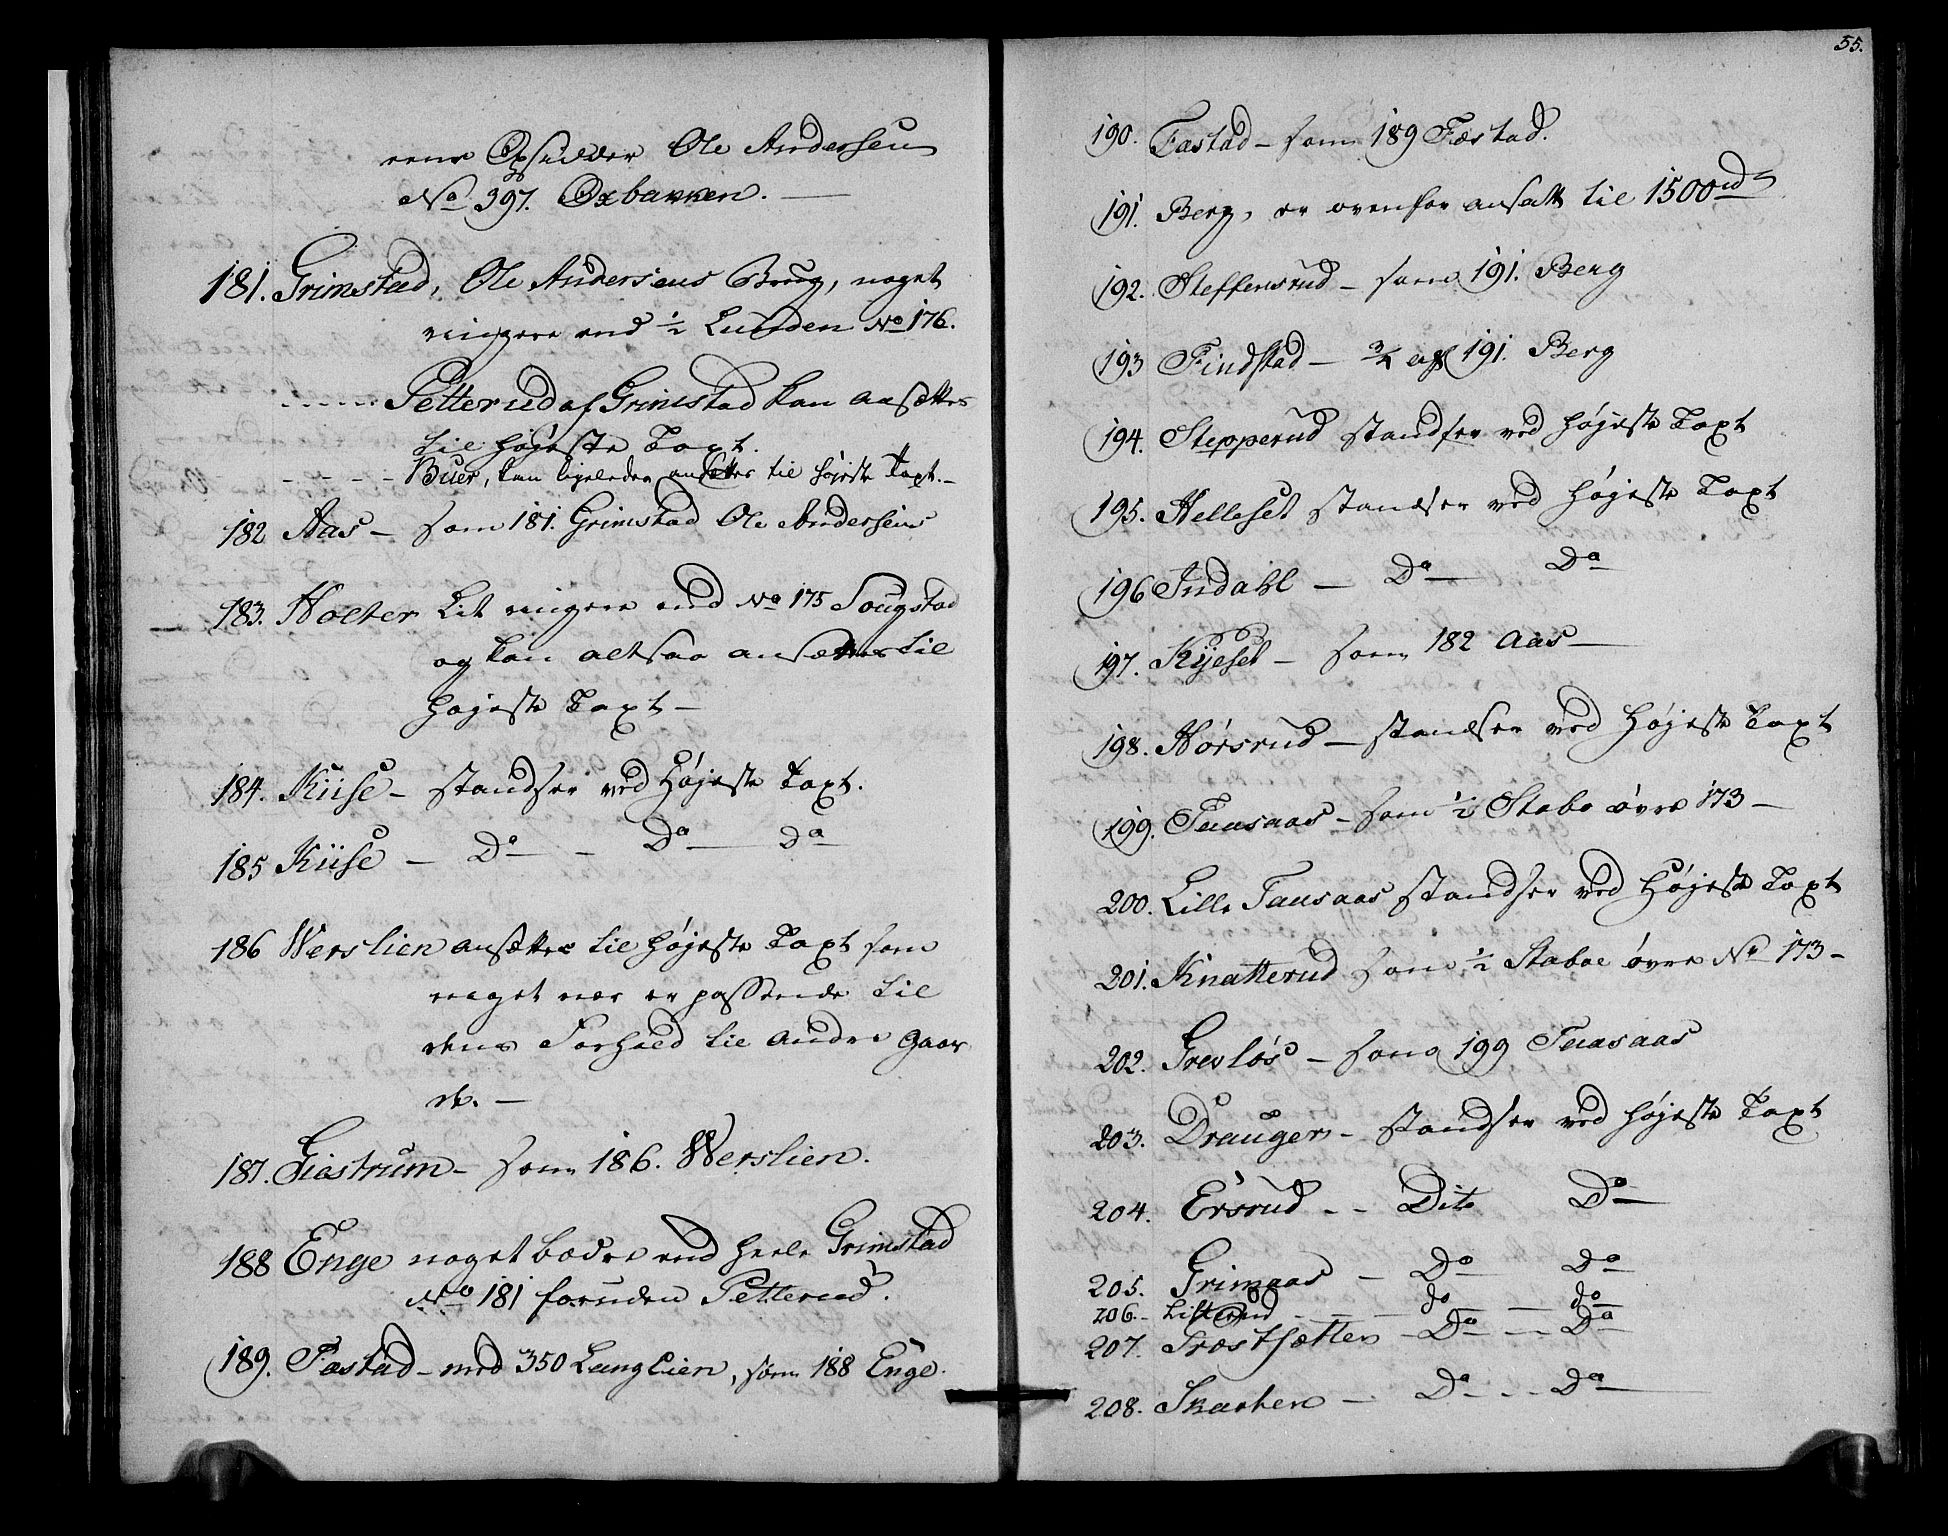 eens Opsidder Ole Andersen
No 397. Oxbakken. —
181. Grimstad, Ole Andersens Brug, noget
ringere end ½ Lunden No 176.
Petterud af Grimstad kan ansættes
til højeste Taxt.
- - - - Buer, kan ligeledes ansættes til højeste Taxt. -
182 Aas - som 181. Grimstad Ole Andersens
183. Holter Lit ringere end No 175 Sougstad
og kan altsaa ansættes til
højeste Taxt -
184. Kiise - standser ved Højeste Taxt.
185 Kiise - Do - Do - Do
186 Werslien ansættes til højeste Taxt som
noget nær er passende til
dens Forhold til andre Gaar
de. -
187. Giestrum - som 186. Werslien.
188 Enge noget bedre end heele Grimstad
No 181 foruden Petterud.
189. Fæstad - med 350 Langlien, som 188 Enge.
55.
190. Fæstad - som 189 Fæstad.
191. Berg, er ovenfor ansatt til 1500 rd
192. Steffensrud - som 191. Berg
193 Findstad - ¾ af 191. Berg
194. Stepperud standser ved højeste Taxt
195. Helleset standser ved højeste Taxt
196 Indahl - Do - Do
197. Kijeset - som 182 Aas -
198. Hørsrud - standser ved højeste Taxt
199. Tausaas - som ½ Stabo øvre 173 -
200. Lille Tausaas standser ved Højeste Taxt
201. Knatterud som ½ Staboe øvre No 173 -
202. Grevløs - som 199 Tausaas
203. Drauger - standser ved højeste Taxt
204. Ersrud - - Dito Do
205. Grimaas - Do Do
206. - Listerud - - do - do
207. Træstsætter - Do - - Do
208. Skarten - Do - - Do